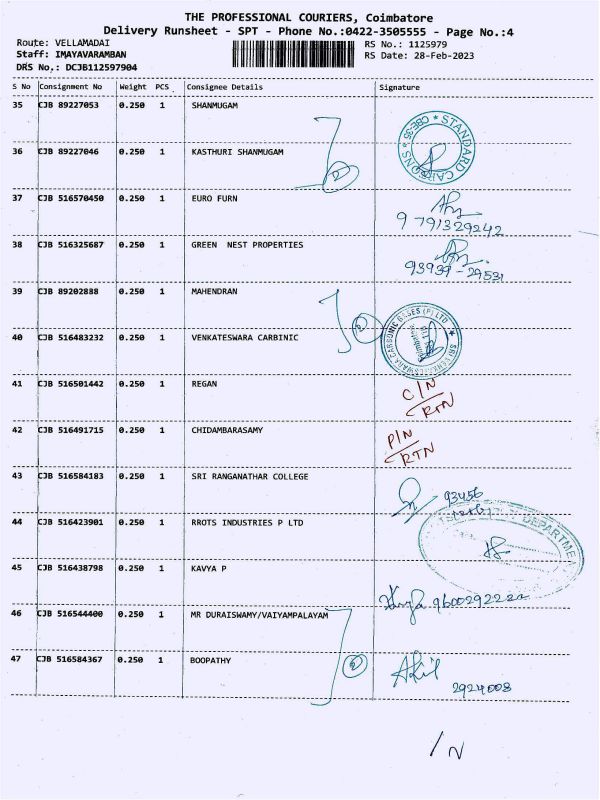 THE PROFESSIONAL COURIERS, Coimbatore
Delivery Runsheet - SPT - Phone No.:0422-3505555 - Page No.:4
Route: VELLAMADAI RS No.: 1125979
Staff: IMAYAVARAMBAN RS Date: 28-Feb-2023
DRS No.: DCJB112597904
S No Consignment No Weight PCS Consignee Details Signature
35 CJB 89227053 0.250 1 SHANMUGAM
STANDARD CARSONS * CBE-35 *
36 CJB 89227046 0.250 1 KASTHURI SHANMUGAM
2
37 CJB 516570450 0.250 1 EURO FURN
9791329242
38 CJB 516325687 0.250 1 GREEN NEST PROPERTIES
93939-29531
39 CJB 89202888 0.250 1 MAHENDRAN
2
40 CJB 516483232 0.250 1 VENKATESWARA CARBINIC
41 CJB 516501442 0.250 1 REGAN
C/N
RTN
42 CJB 516491715 0.250 1 CHIDAMBARASAMY
P/N
RTN
43 CJB 516584183 0.250 1 SRI RANGANATHAR COLLEGE
93456
44 CJB 516423901 0.250 1 RROTS INDUSTRIES P LTD
DEPARTMENT
45 CJB 516438798 0.250 1 KAVYA P
Kavya
46 CJB 516544400 0.250 1 MR DURAISWAMY/VAIYAMPALAYAM
47 CJB 516584367 0.250 1 BOOPATHY
2
Akil
2924008
/ N